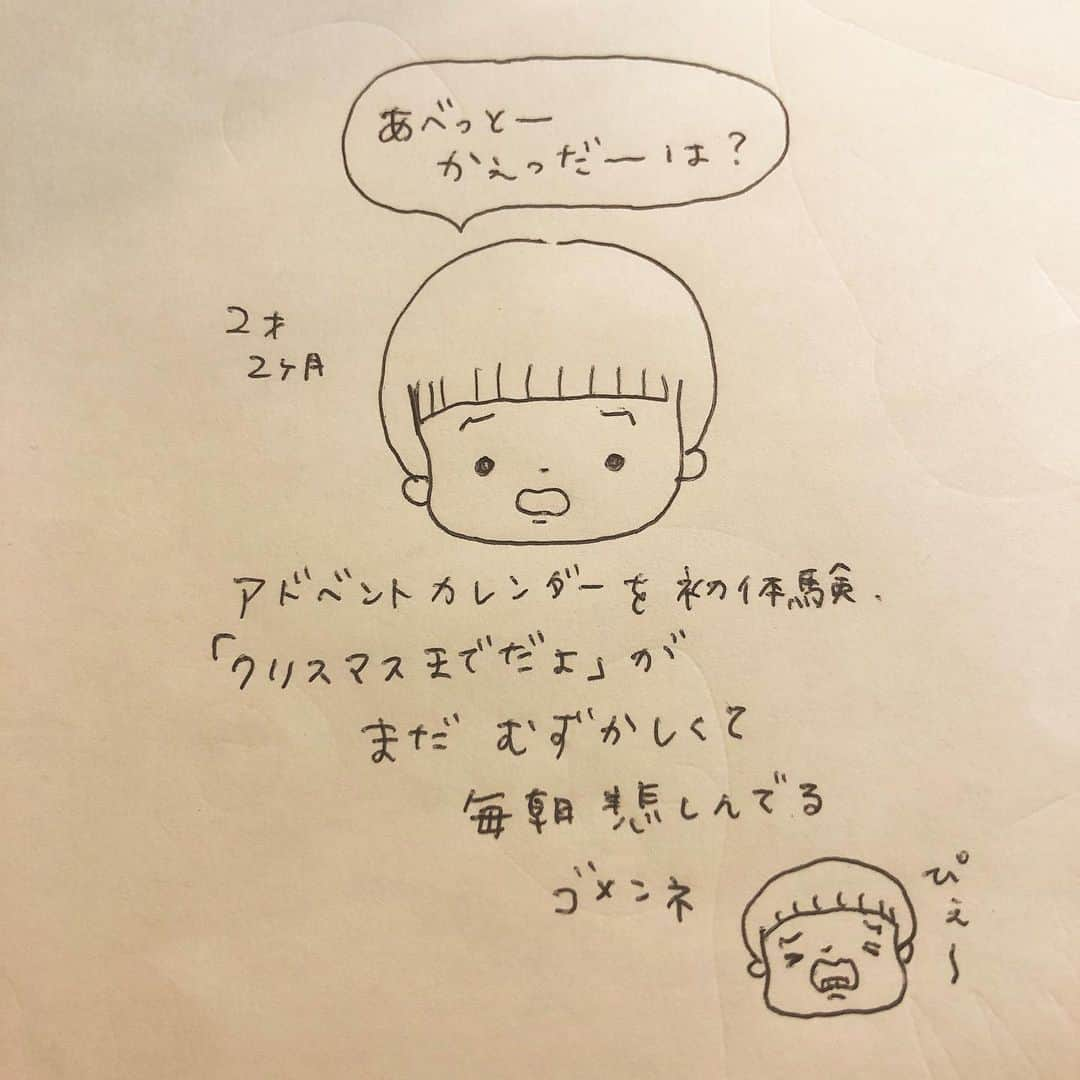 あべっとー
かえっだーは？
2才
2ヶ月
アドベントカレンダーを初体験.
「クリスマスまでだよ」が
まだ むずかしくて
毎朝 悲しんでる
ゴメンネ
ぴぇ〜